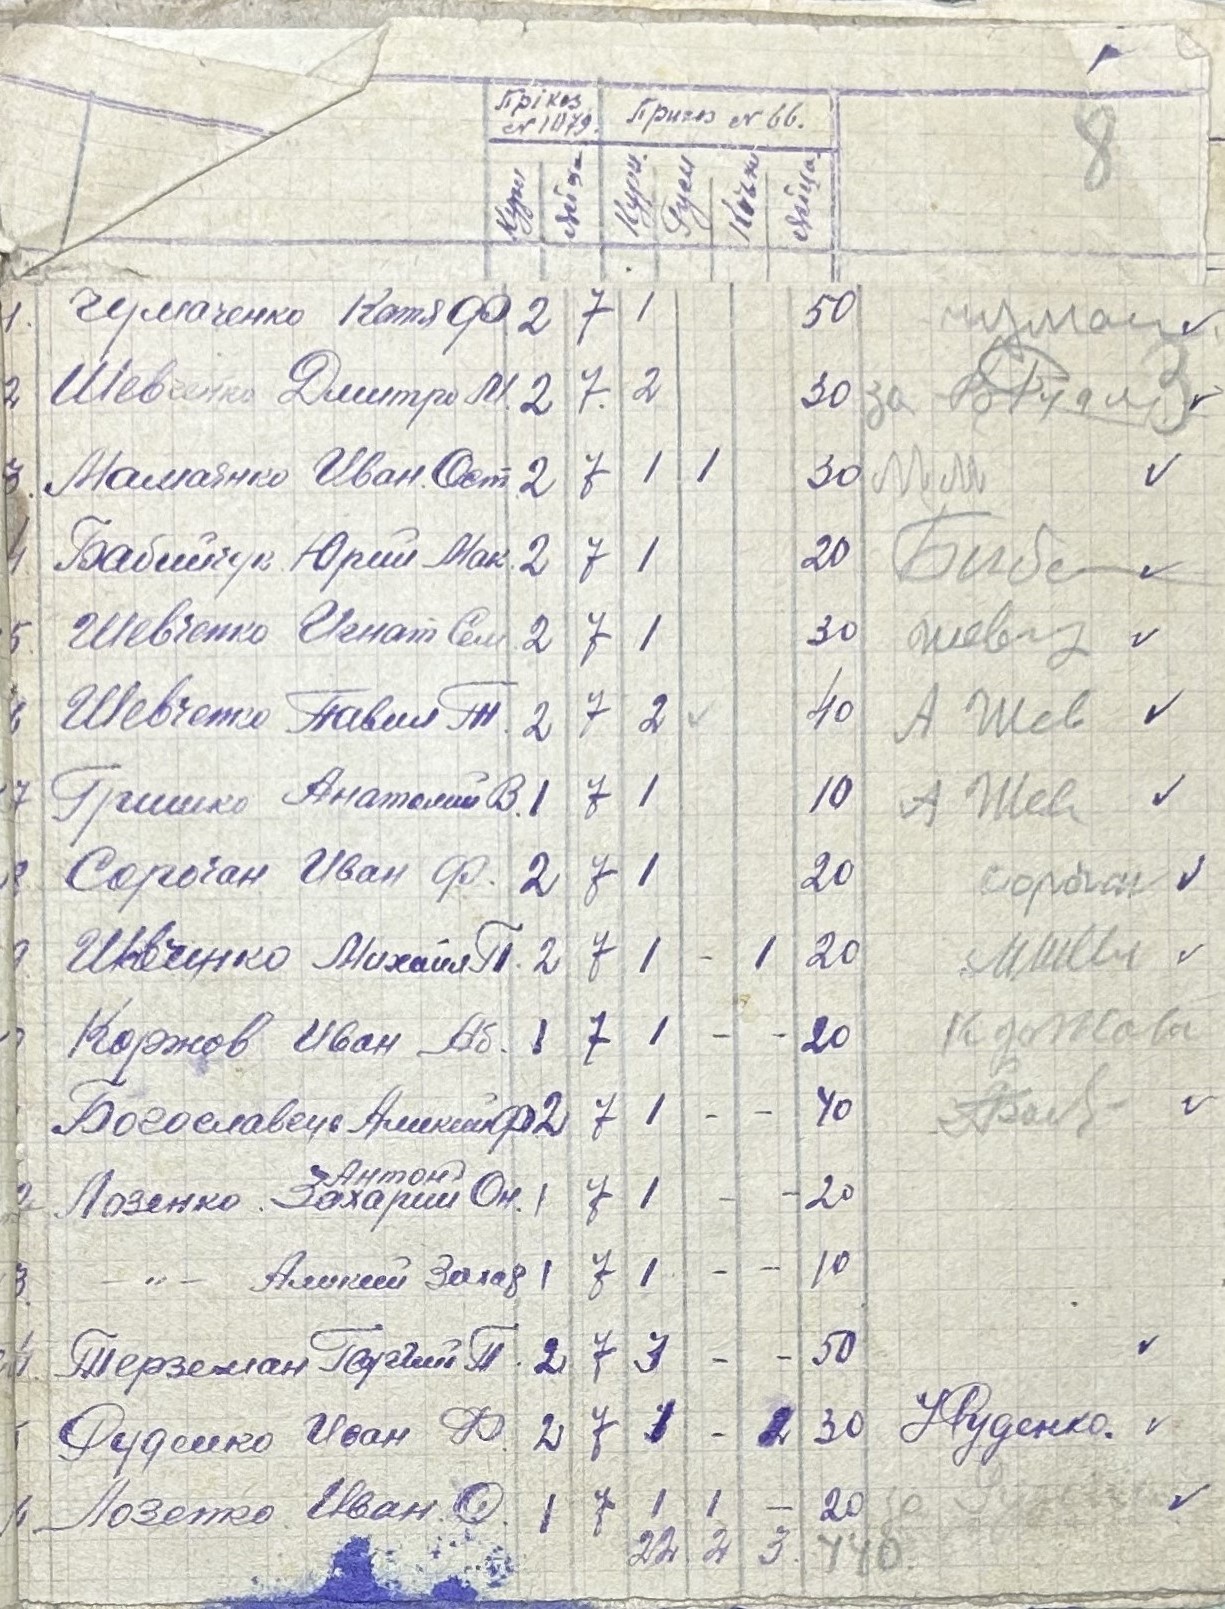 8
Прікоз Пригоз № 66.
№ 1079.
Кури Яйця Кури Гуси Кочки Яйця
1. Чумаченко Катя Ф. 2 7 1 50
2 Шевченко Дмитро М. 2 7. 2 30 за
3. Мамаенко Иван. Ост 2 7 1 1 30
4 Бабийчук Юрий Мак. 2 7 1 20
5. Шевченко Игнат Сем 2 7 1 30
6 Шевченко Павил Т. 2 7 2 40 А Шев
7 Гришко Анатолий В. 1 7 1 10 А Шев
8 Сорочан Иван Ф. 2 7 1 20 сорочан
9 Шевченко Михаил П. 2 7 1 - 1 20
Коржов Иван Аб. 1 7 1 - - 20
Богославець Алексей Ф 2 7 1 - - 40
Антон
2 Лозенко Захарий Он. 1 7 1 - - 20
3. -"- Алексий Захар 1 7 1 - - 10
4. Терземан Георгий П. 2 7 3 - - 50
5 Руденко Иван Ф. 2 7 1 - 2 30 Руденко.
6 Лозенко Иван. О. 1 7 1 1 - 20 за
22 2 3. 440